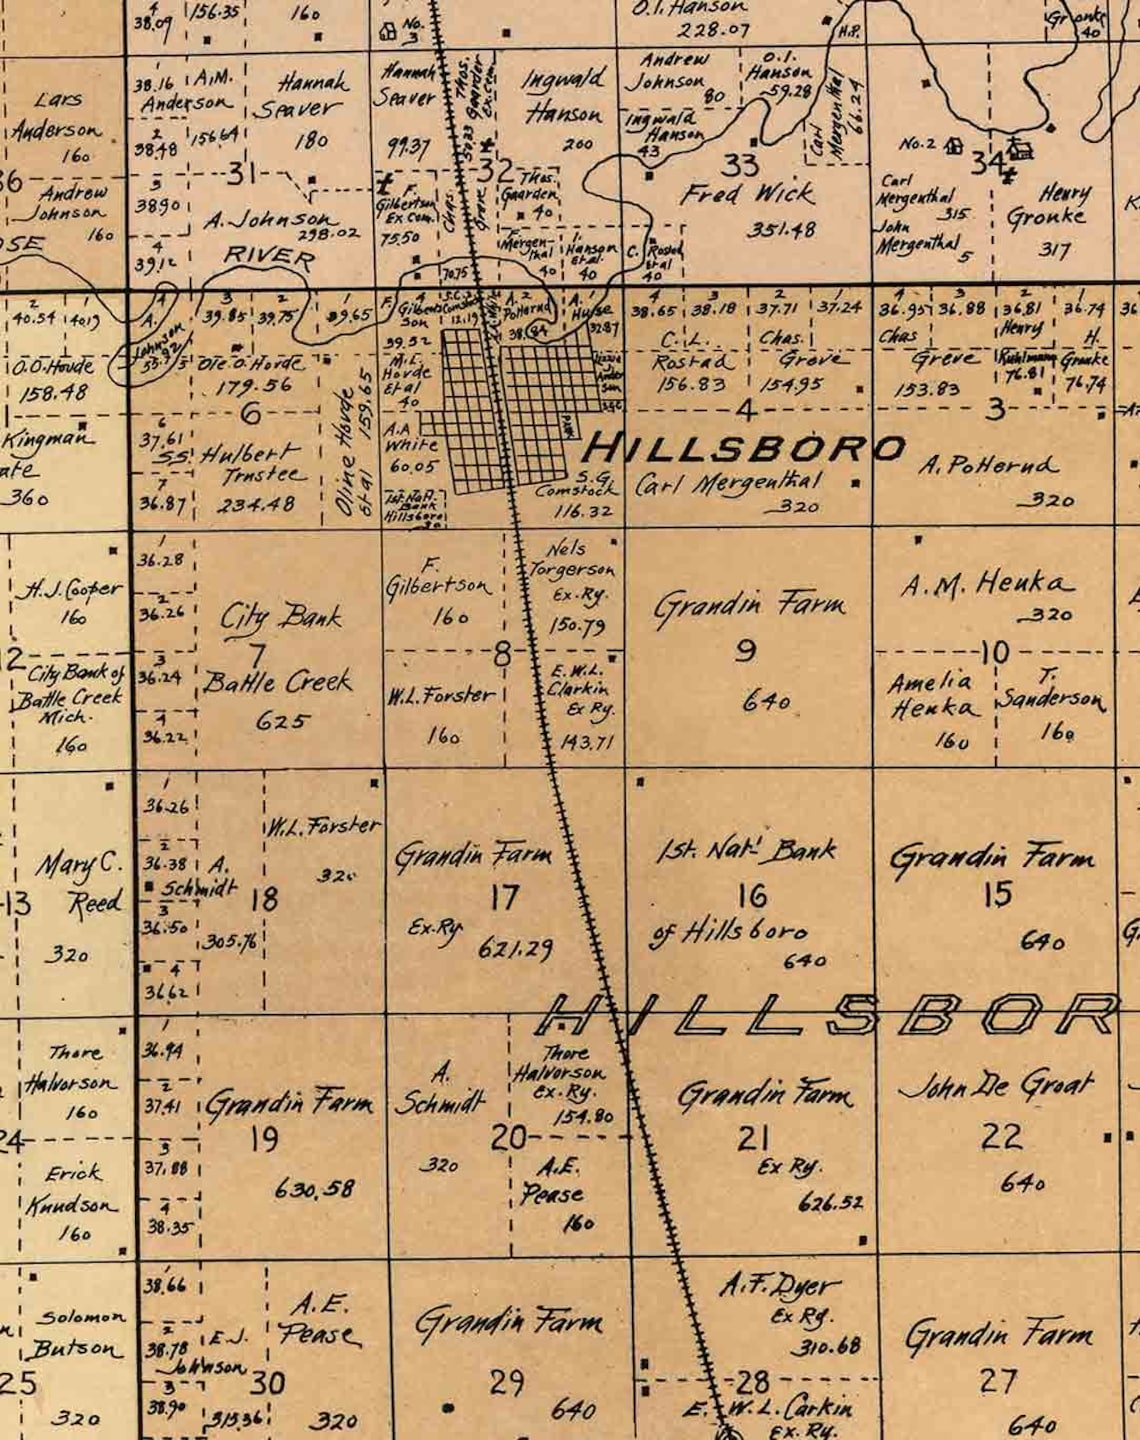 4
38.09
156.35
160
No. 3
O.I. Hanson
228.07
H.P.
Gronke
40
Lars
Anderson
160
38.16
A.M.
Anderson
2
38.48
156.64
Hannah
Seaver
180
Hannah
Seaver
99.37
Thos.
Gaarder
Ex.Com.
Ingwald
Hanson
200
Andrew
Johnson
80
O.I.
Hanson
59.28
Ingwald
Hanson
43
Carl
Mergenthal
66.24
No.2
31
32
33
34
36
Andrew
Johnson
160
3
38.90
4
39.12
A. Johnson
298.02
RIVER
F.
Gilbertson
Ex Com.
75.50
Chas.
Greve
70.75
Thos.
Gaarden
40
F.
Mergen-
thal
40
I.
Hanson
Et al.
40
C. Rostad
Et al
40
Fred Wick
351.48
Carl
Mergenthal
315
John
Mergenthal
5
Henry
Gronke
317
OSE
2
40.54
1
40.19
4
A.
Johnson
55.92
3
39.85
2
39.75
1
39.65
F.
Gilbertson
39.52
S.G.
Comstock
12.19
A.
Potterud
38.84
A.
Hulse
32.87
4
38.65
3
38.18
2
37.71
1
37.24
4
36.95
3
36.88
2
36.81
1
36.74
36
O.O. Hovde
158.48
5
Ole O. Hovde
179.56
6
Oline Hovde
Et al 159.65
M.L.
Hovde
Et al
40
PARK
C. L.
Rostad
156.83
Chas.
Greve
154.95
4
Chas
Greve
153.83
Henry
Ruhlmann
76.81
H.
Gronke
76.74
3
HILLSBORO
Kingman
ate
360
6
37.61
S.S.
7
36.87
Hulbert
Trustee
234.48
A.A
White
60.05
1st. Nat.
Bank
Hillsboro
S.G.
Comstock
116.32
Carl Mergenthal
320
A. Potterud
320
H.J. Cooper
160
1
36.28
2
36.26
3
36.24
4
36.22
City Bank
7
Battle Creek
625
F.
Gilbertson
160
8
Nels
Torgerson
Ex. Ry.
150.79
Grandin Farm
9
640
A. M. Henka
320
10
12
City Bank of
Battle Creek
Mich.
160
W.L. Forster
160
E. W.L.
Clarkin
Ex Ry.
143.71
Amelia
Henka
160
T.
Sanderson
160
Mary C.
13 Reed
320
1
36.26
2
36.38
3
36.50
4
36.62
A.
Schmidt
305.76
18
W.L. Forster
320
Grandin Farm
17
Ex-Ry
621.29
1st. Nat'l Bank
16
of Hillsboro
640
Grandin Farm
15
640
HILLSBOR
Thore
Halvorson
160
24
Erick
Knudson
160
1
36.94
2
37.41
3
37.88
4
38.35
Grandin Farm
19
630.58
A.
Schmidt
20
320
Thore
Halvorson
Ex. Ry.
154.80
A.E.
Pease
160
Grandin Farm
21
Ex Ry.
626.52
John De Groat
22
640
Solomon
Butson
25
320
1
38.66
2
38.78
3
38.90
E.J.
Johnson
30
315.36
A.E.
Pease
320
Grandin Farm
29
640
A.F. Dyer
Ex Ry.
310.68
28
E. W.L. Carkin
Ex. Ry.
Grandin Farm
27
640